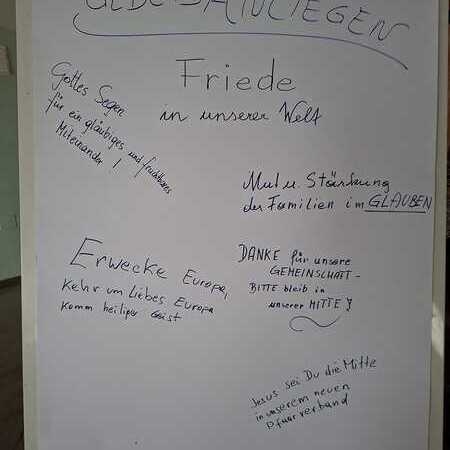 GEBETSANLIEGEN
Friede
in unserer Welt
Gottes Segen
für ein gläubiges und fruchtbares
Miteinander!
Mut u. Stärkung
der Familien im GLAUBEN
Erwecke Europa,
Kehr um liebes Europa
Komm heiliger Geist
DANKE für unsere
GEMEINSCHAFT -
BITTE bleib in
unserer MITTE!
Jesus sei Du die Mitte
in unserem neuen
Pfarrverband